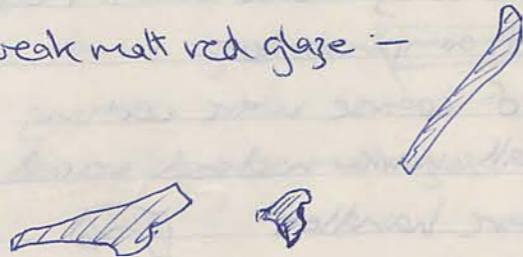 weak matt red glaze :-